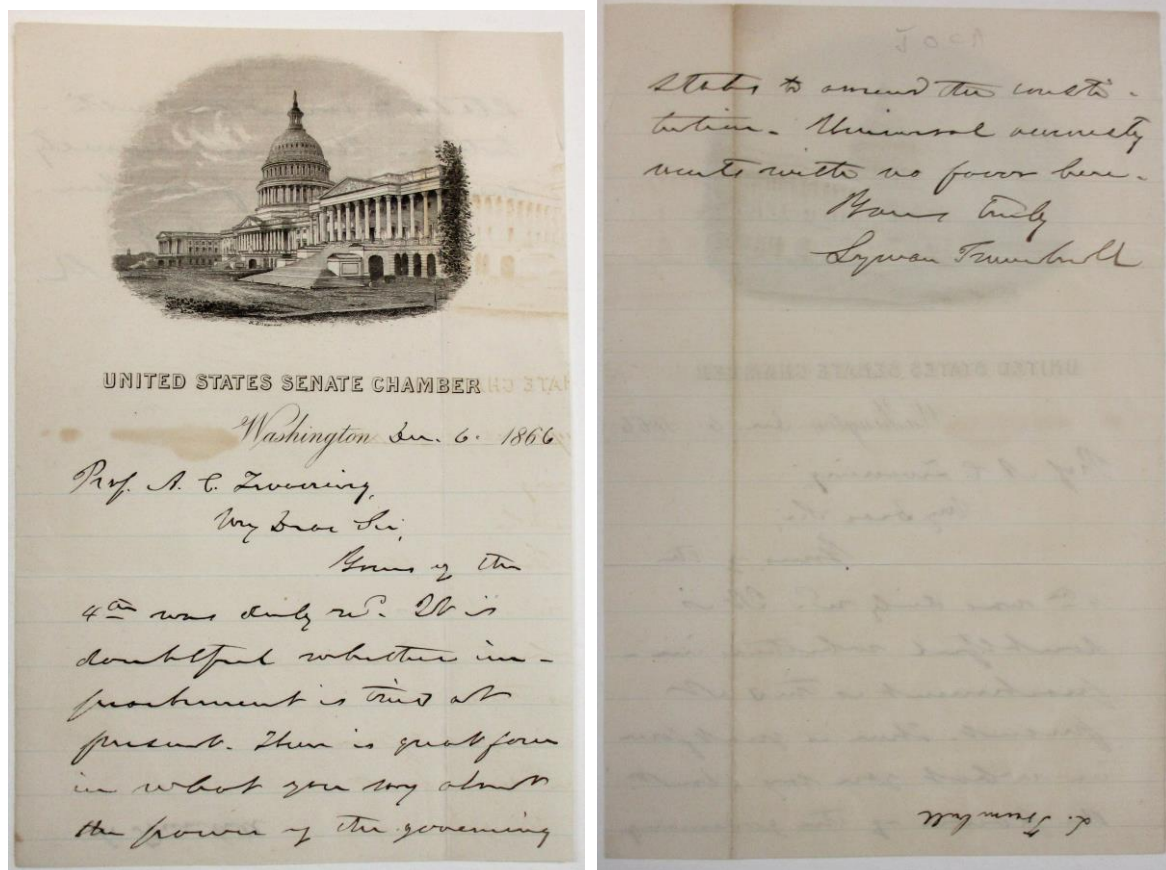 UNITED STATES SENATE CHAMBER
Washington Dec. 6. 1866
Prof. A. C. Twining,
My Dear Sir,
Yours of the
4th was duly recd. It is
doubtful whether im-
peachment is tried at
present. There is great force
in what you say about
the power of the governing
states to amend the consti-
tution. Universal amnesty
meets with no favor here.
Yours truly
Lyman Trumbull
L. Trumbull